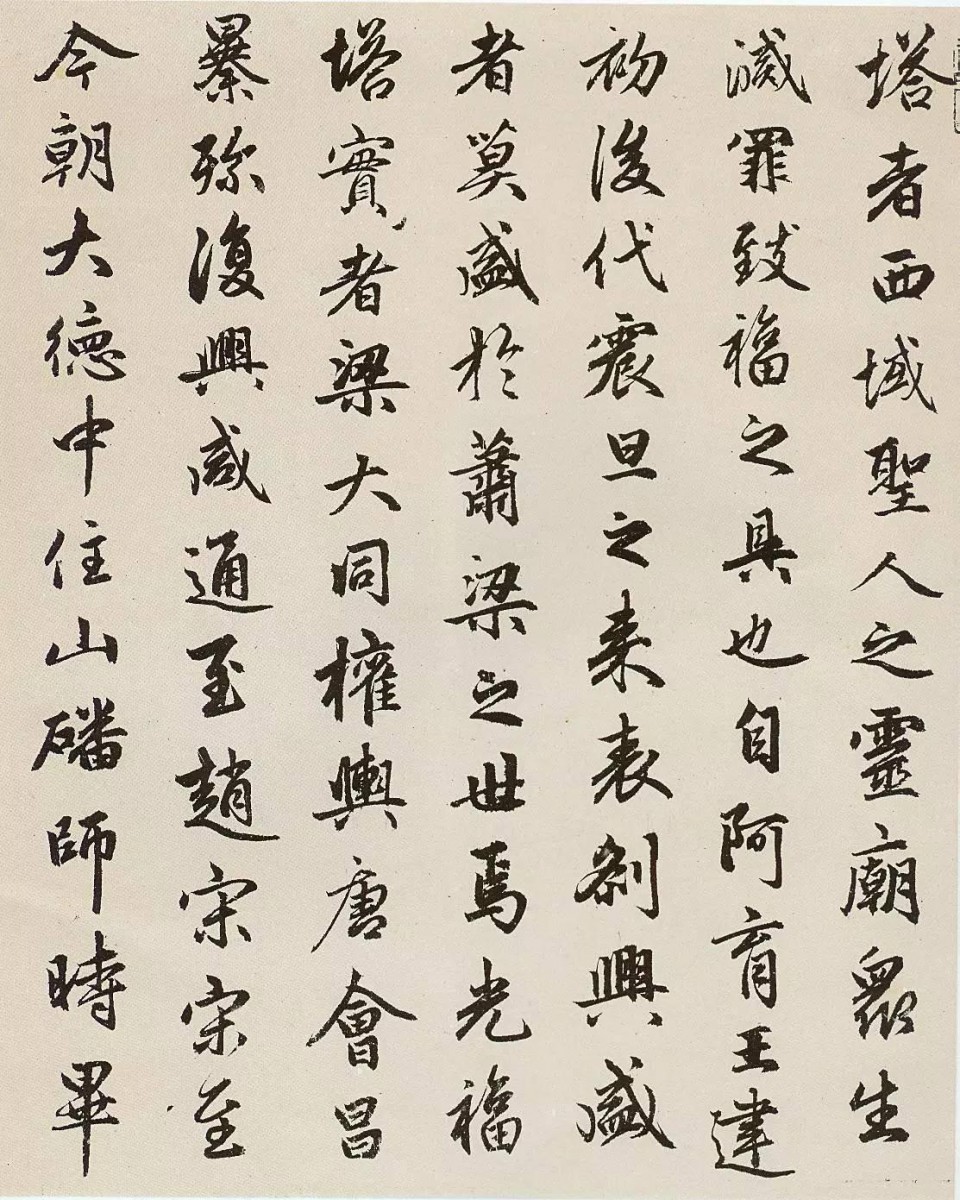 塔者西域聖人之靈廟衆生
滅罪致福之具也自阿育王建
初後代震旦之来表刹興盛
者莫盛於蕭梁之世焉光福
塔實者梁大同權輿唐會昌
暴殄復興咸通至趙宋宋至
今朝大德中住山磻師時畢